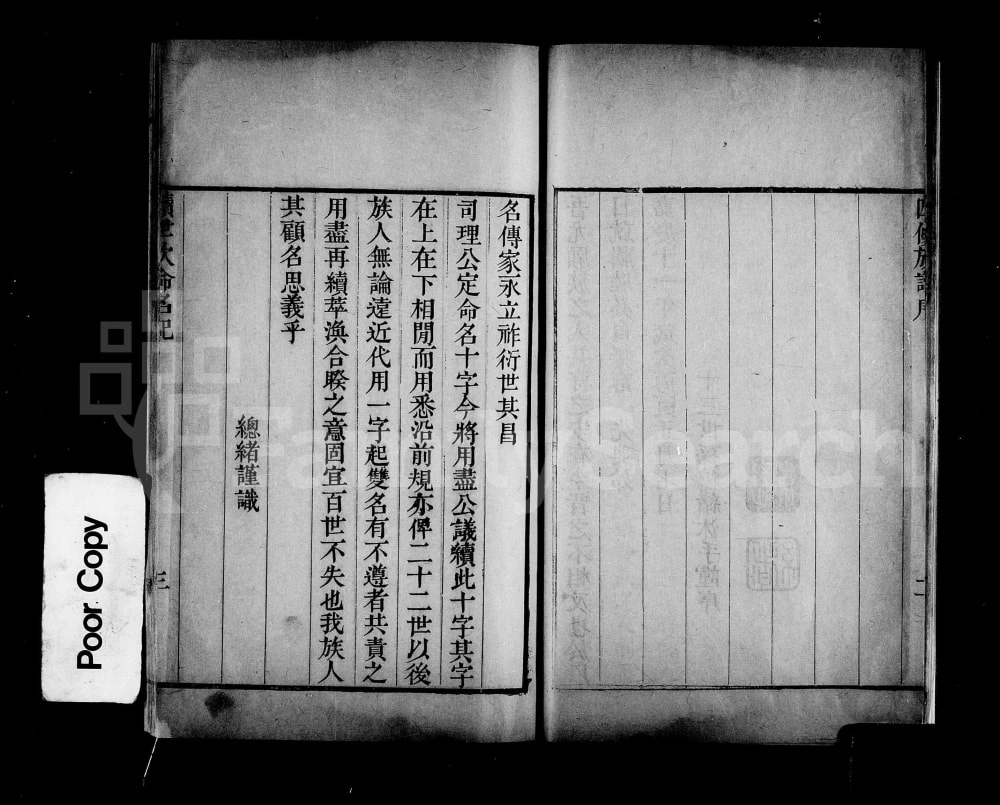 四修族譜序
二
名傳家永立祚衍世其昌
司理公定命名十字今將用盡公議續此十字其字
在上在下相閒而用悉沿前規亦俾二十二世以後
族人無論遠近代用一字起雙名有不遵者共責之
用盡再續萃渙合睽之意固宜百世不失也我族人
其顧名思義乎
總緒謹識
續世次命名記
三
Poor Copy
FamilySearch